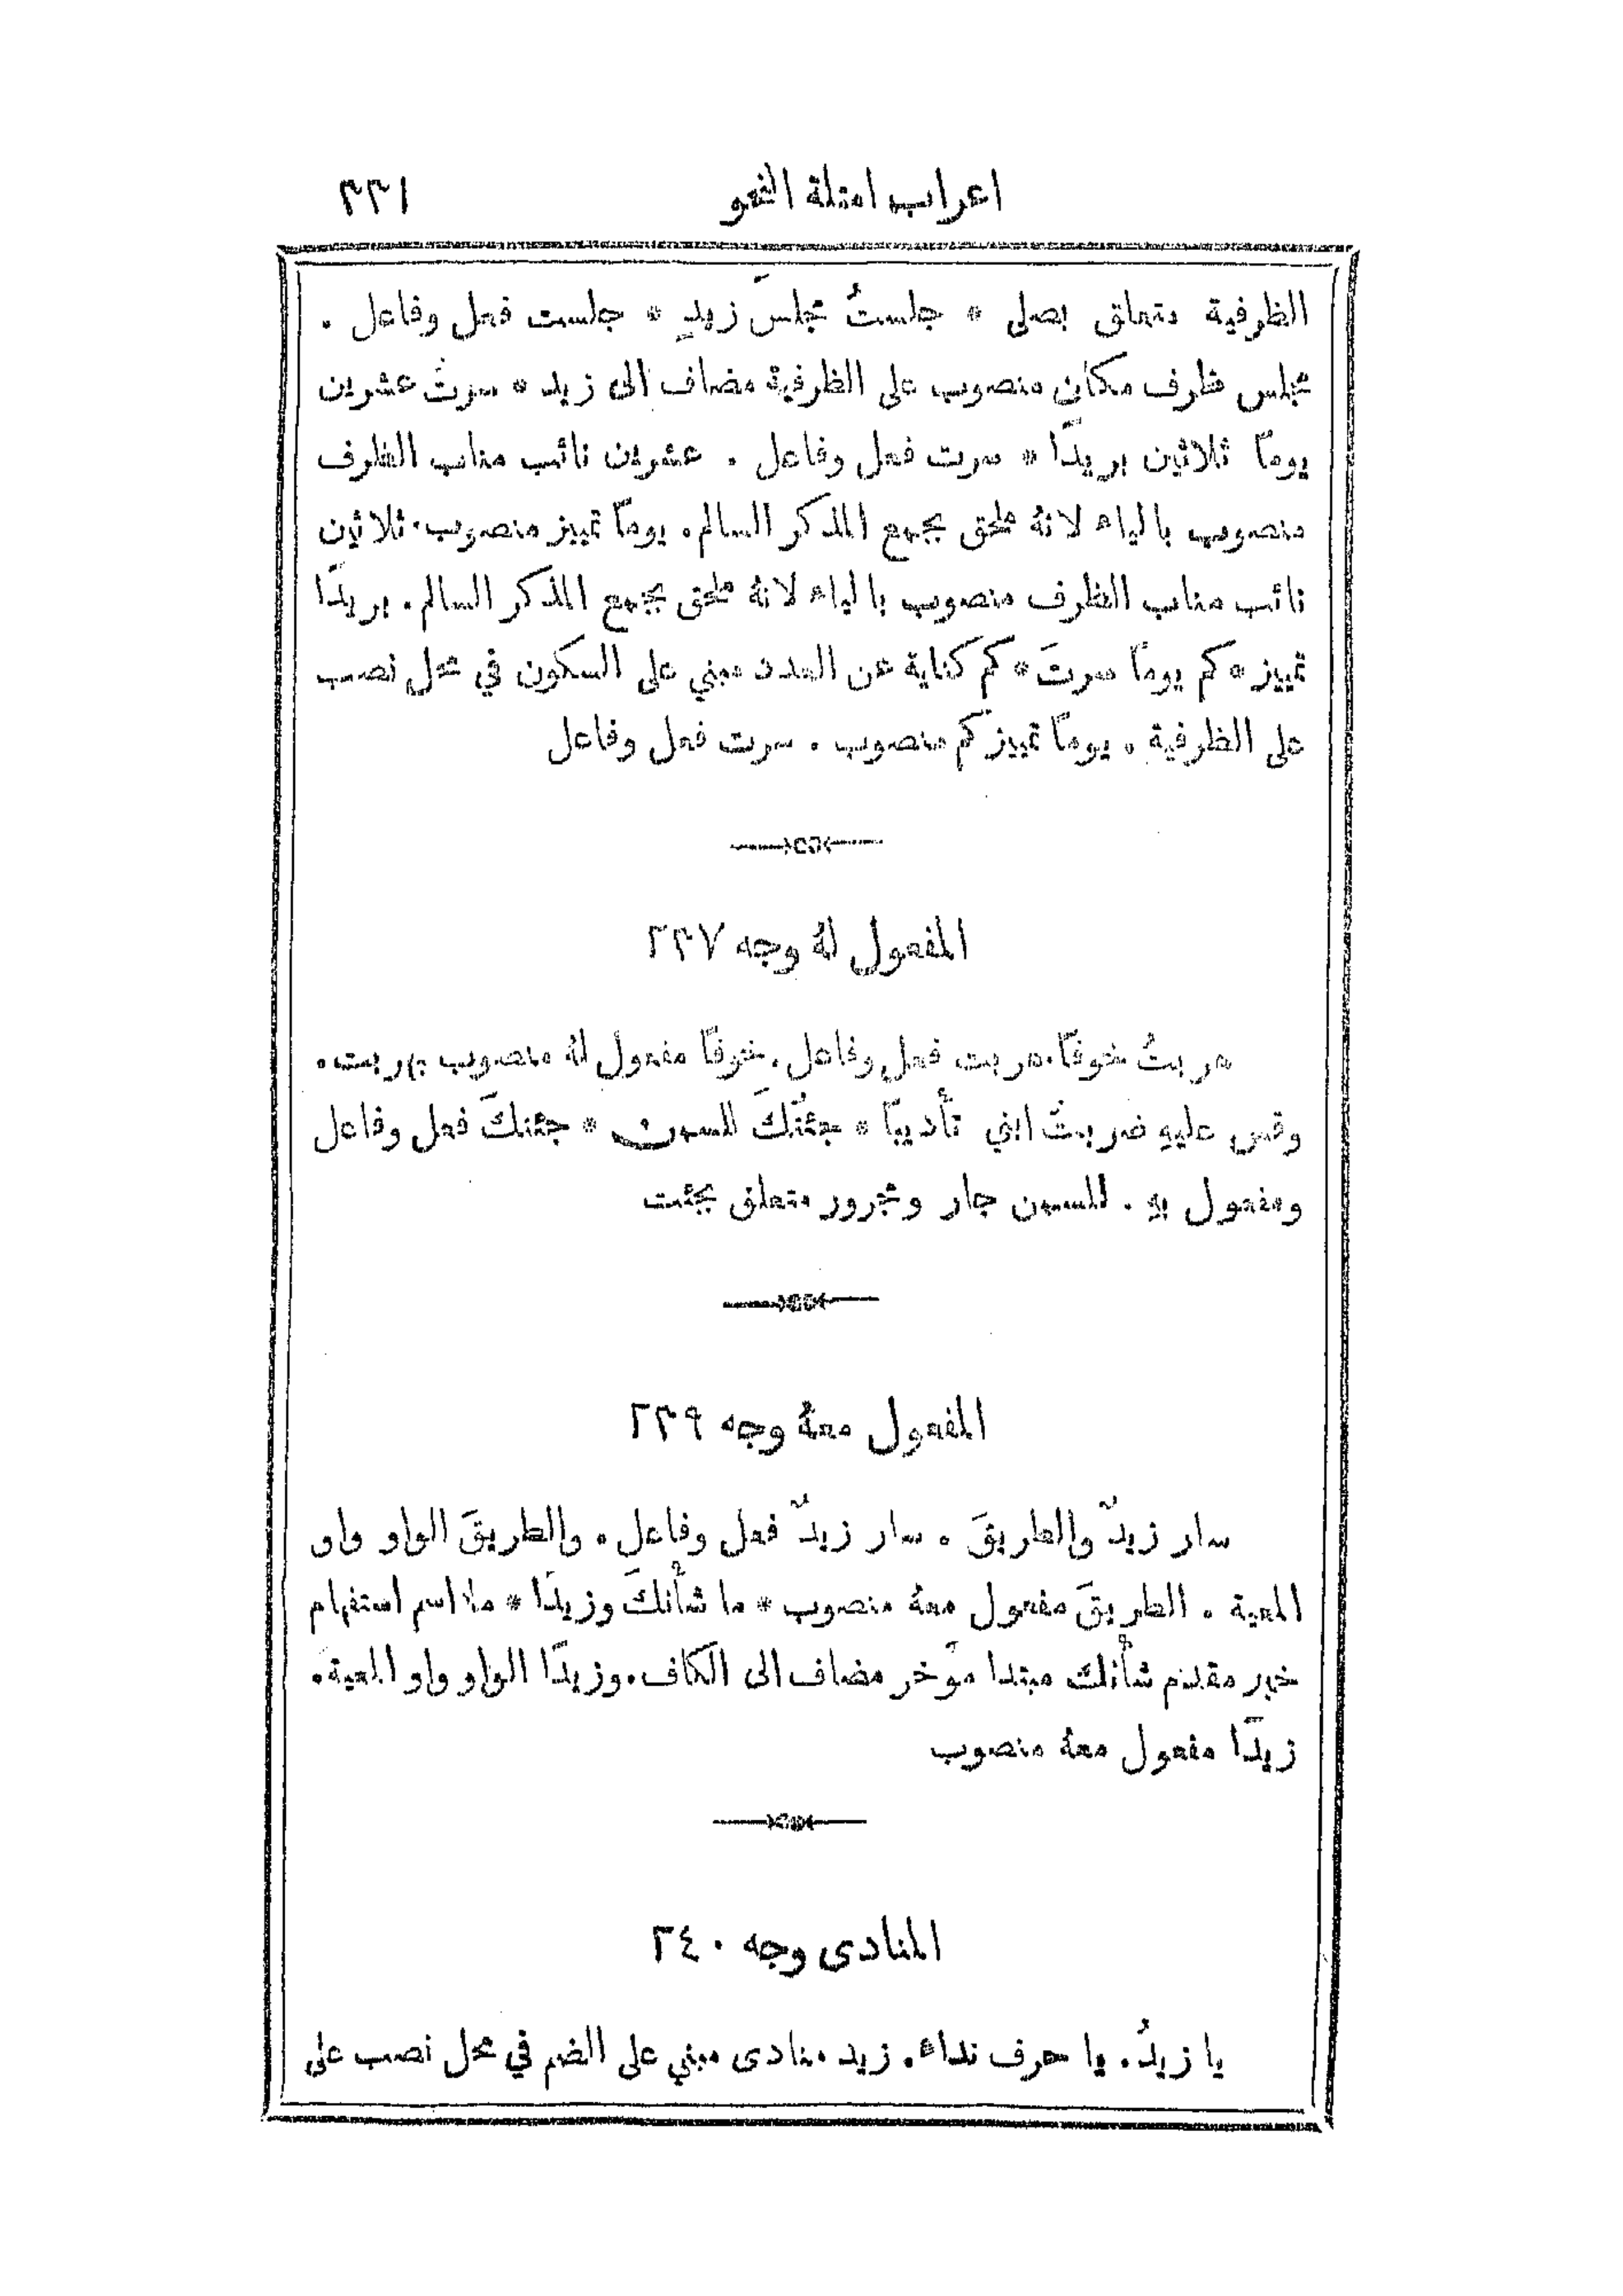 اعراب امثلة النحو ٣٣١
الظرفية متعلق بصلى * جلستُ مجلسَ زيدٍ * جلست فعل وفاعل .
مجلس ظرف مكاني منصوب على الظرفية مضاف الى زيد * سرتُ عشرين
يومًا ثلاثين بريدًا * سرت فعل وفاعل . عشرين نائب مناب الظرف
منصوب بالياء لانهُ ملحق بجمع المذكر السالم. يومًا تمييز منصوب. ثلاثين
نائب مناب الظرف منصوب بالياء لانهُ ملحق بجمع المذكر السالم. بريدًا
تمييز * كم يومًا سرتَ * كم كناية عن العدد مبني على السكون في محل نصب
على الظرفية . يومًا تمييز كم منصوب . سرت فعل وفاعل
المفعول لهُ وجه ٢٣٧
هربتُ خوفًا. هربت فعل وفاعل. خوفًا مفعول لهُ منصوب بهربت.
وقس عليهِ ضربتُ ابني تأديبًا * جئتُكَ للسمن * جئتكَ فعل وفاعل
ومفعول بهِ . للسمن جار ومجرور متعلق بجئت
المفعول معهُ وجه ٢٣٩
سار زيدٌ والطريقَ . سار زيدٌ فعل وفاعل. والطريقَ الواو واو
المعية . الطريقَ مفعول معهُ منصوب * ما شأْنكَ وزيدًا * ما اسم استفهام
خبر مقدم شأْنك مبتدا موَّخر مضاف الى الكاف. وزيدًا الواو واو المعية.
زيدًا مفعول معهُ منصوب
المنادى وجه ٢٤٠
يا زيدُ. يا حرف نداء. زيد منادى مبني على الضم في محل نصب على